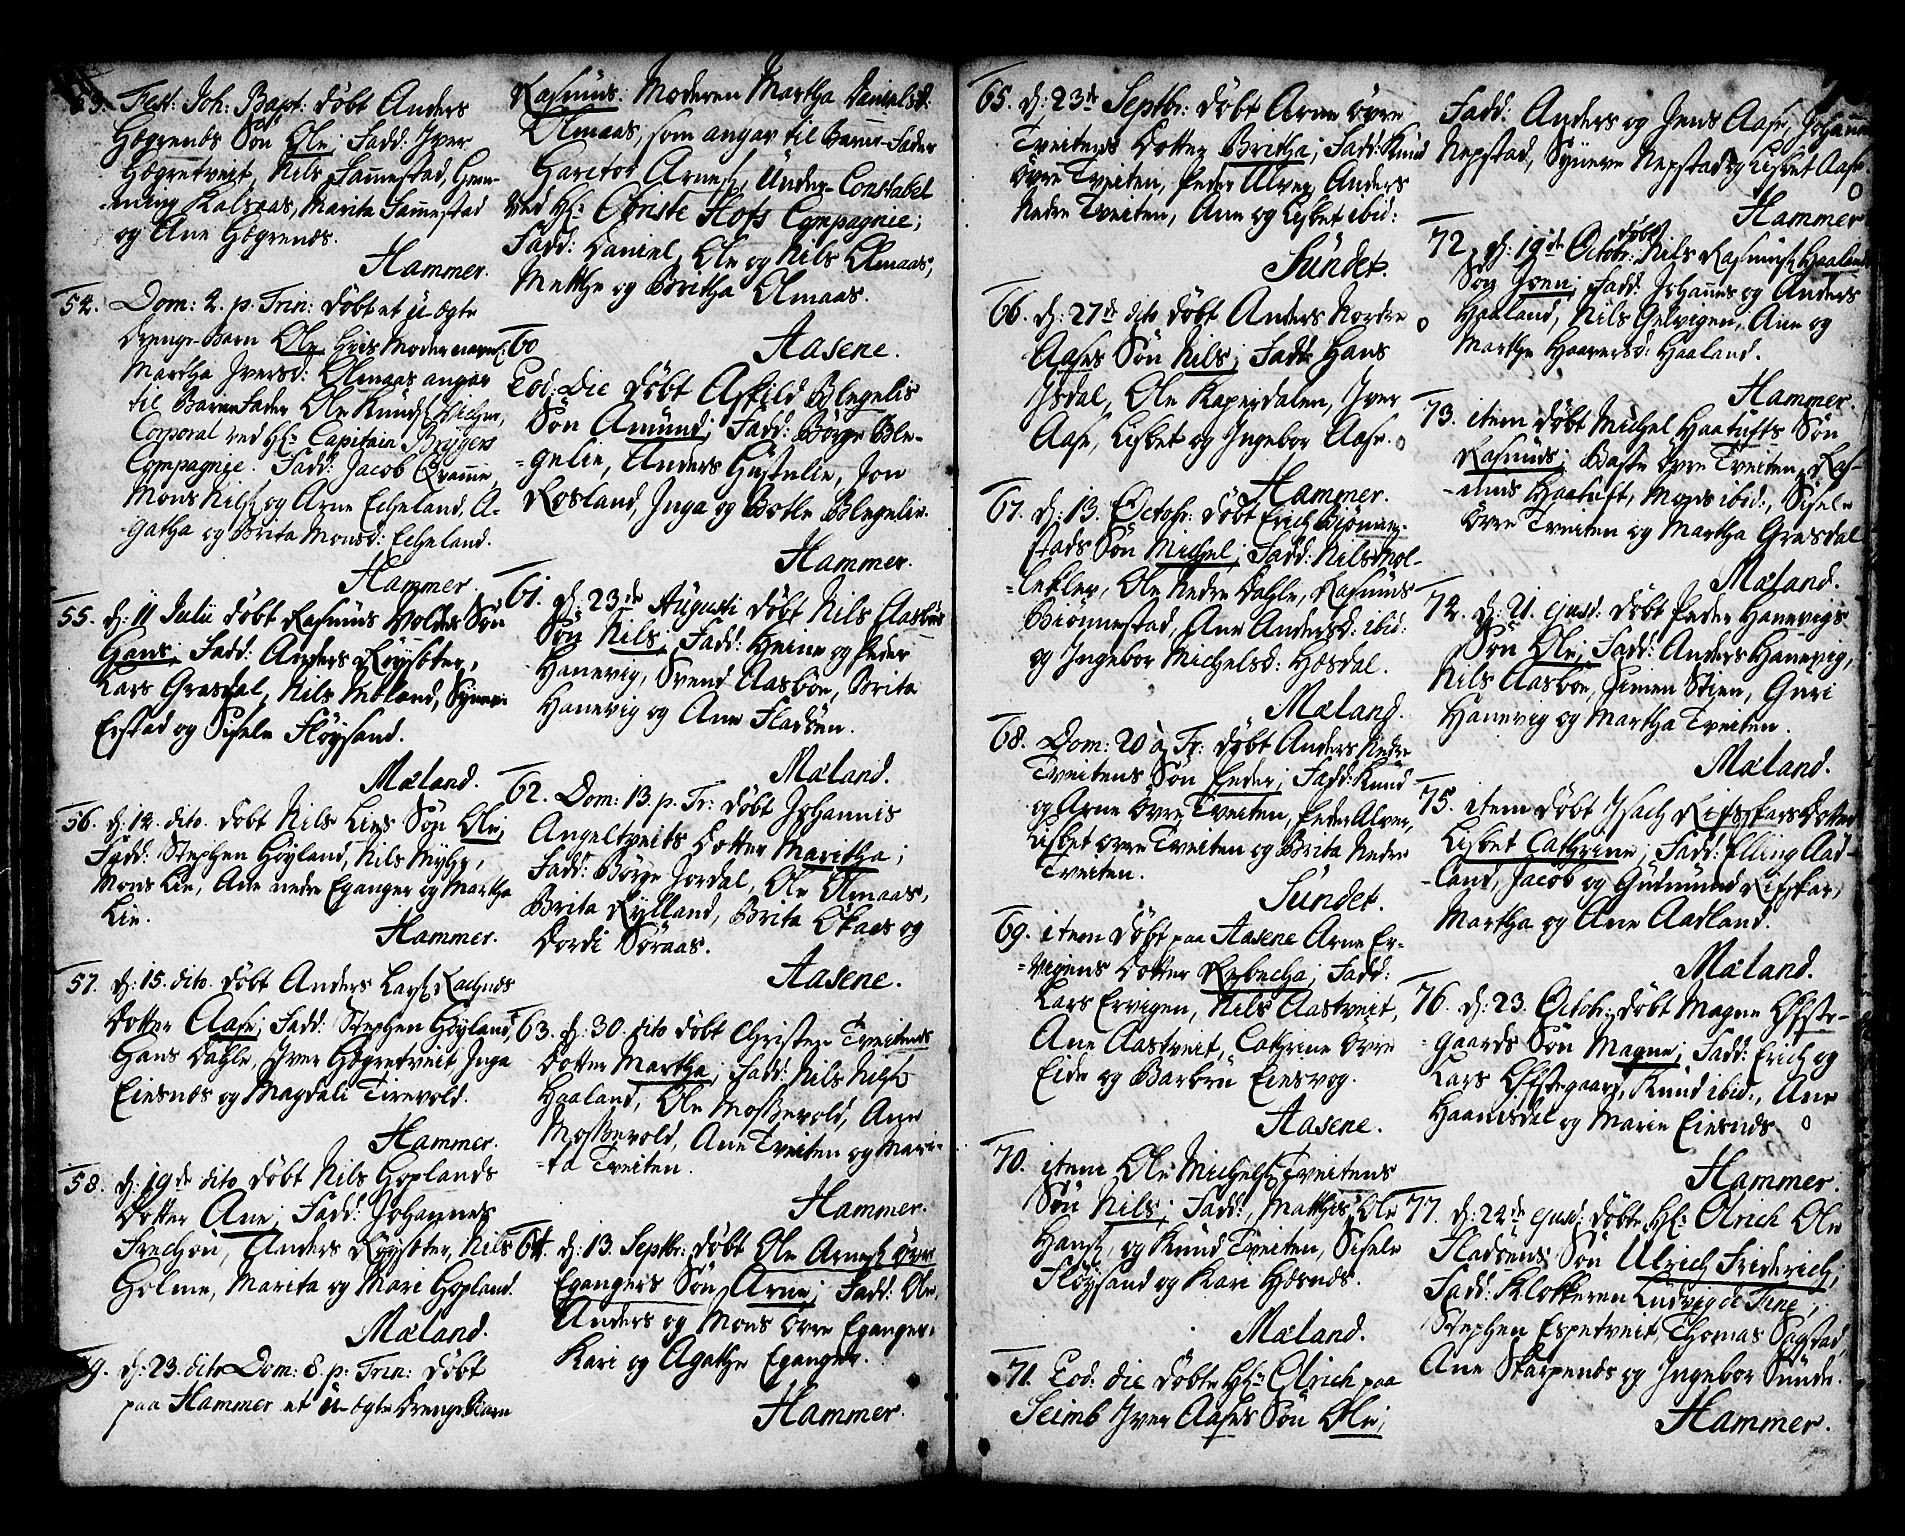 53. Fest: Joh: Bapt: døbt Anders
Høgrenes Søn Ole; Fadd: Iver
Høgretveit, Nils Samestad, Hen-
-ning Kalsaas, Marita Samestad
og Ane Høgrenes.
Hammer.
54. Dom: 2. p. Trin: døbt et u-ægte
Drenge-Barn Ole, hvis Moder navnl.
Martha Iversd: Olmaas angav
til Barnefader Ole Knuds
Corporal ved Hr. Capitain Brygers
Compagnie. Fadd: Jacob
Mons Nils: og Arne Echeland, A-
-gatha og Brita Monsd: Echeland.
Hammer.
55. d: 11 Julii døbt Rasmus Wolds Søn
Hans, Fadd: Anders Røysøter,
Lars Grasdal, Nils Mæland, Synneve
Eystad og Sisele Fløysand.
Mæland.
56. d: 12. dito. døbt Nils Lies Søn Ole;
Fadd: Stephen Høyland, Nils Myhr,
Mons Lie, Ane nedre Eganger og Martha
Lie.
Hammer.
57. d: 15. dito. døbt Anders Lars: Rachnes
Dotter Aase; Fadd: Stephen Høyland,
Hans Dahle, Iver Høgretveit, Inga
Eiesnes og Magdali Tirevold.
Hammer.
58. d: 19de dito døbt Nils Hoplands
Dotter Ane; Fadd: Johannes
Frechou, Anders Røysøter, Nils
Holme, Marita og Mari Hopland.
Mæland.
59. d: 23. dito Dom: 8. p: Trin: døbt
paa Hammer et u-ægte Drenge Barn
Rasmus. Moderen Martha Danielsd:
Olmaas, som angav til Barne-Fader
Haritor Arnes:, Under-Constabel
ved Hr: Obriste Hofs Compagnie;
Fadd: Daniel, Ole og Nils Olmaas,
Metthe og Britha Olmaas.
Aasene.
60
Eod: Die døbt Askild Blegelis
Søn Amund; Fadd: Børge Ble-
-gelie, Anders Hustulie, Jon
Rosland, Inga og Botle Blegelie.
Hammer.
61. d: 23de Augusti døbt Nils Aasbøes
Søn Nils; Fadd: Heine og Peder
Hanevig, Svend Aasbøe, Brita
Hanevig og Ane Fladøen.
Mæland.
62. Dom: 13. p. Tr: døbt Johannis
Angeltveits Dotter Maritha;
Fadd: Børge Jordal, Ole Olmaas,
Brita Rylland, Brita Okaas og
Dordi Søraas.
Aasene.
63. d: 30. dito døbt Christen Tveitens
Dotter Martha; Fadd: Nils Nils:
Haaland, Ole Mossevold, Ane
Mossevold, Ane Tveiten og Mari-
-ta Tveiten.
Hammer.
64. d: 13. Septbr: døbt Ole Arnes: øvre
Egangers Søn Arne; Fadd: Ole,
Anders og Mons øvre Eganger,
Kari og Agathe Eganger.
Hammer.
65. d: 23de Septbr: døbt Arne øvre
Tveitens Dotter Britha; Fadd: Knud
øvre Tveiten, Peder Alver, Anders
Nedre Tveiten, Ane og Lisbet ibid:
Sundet.
66. d: 27de dito døbt Anders Nordre
Aases Søn Nils; Fadd: Hans
Isdal, Ole Kaperdalen, Iver
Aase, Lisbet og Ingebor Aase.
Hammer.
67. d: 13. Octobr: døbt Erich Biørne-
stads Søn Michel; Fadd: Nils Mol-
-lekler, Ole Nedre Dahle, Rasmus
Biørnestad, Ane Andersd: ibid:
og Ingebor Michelsd: Hæsdal.
Mæland.
68. Dom: 20 a Tr: døbt Anders Nedre
Tveitens Søn Peder; Fadd: Knud
og Arne øvre Tveiten, Peder Alver,
Lisbet øvre Tveiten og Brita Nedre
Tveiten.
Sundet.
69. item døbt paa Aasene Arne Er-
-vigens Dotter Rebecha; Fadd:
Lars Ervigen, Nils Aastveit,
Ane Aastveit, Cathrine øvre
Eide og Barbru Eiesvog.
Aasene.
70. item Ole Michels: Tveitens
Søn Nils; Fadd: Matthis, Ole
Hans:, og Knud Tveiten, Sisele
Fløysand og Kari Hæsnes.
Mæland.
71. Eod. die døbte Hr: Olrich paa
Seimb Iver Aases Søn Ole;
Fadd: Anders og Jens Aase, Johannes
Nepstad, Synneve Nepstad og Lisbet Aase.
Hammer
72. d: 19de Octobr: døbt Nils Rasmus: Haalands
Søn Iven; Fadd: Johannes og Anders
Haaland, Nils Gelvigen, Ane og
Marthe Haaversd: Haaland.
Hammer.
73. item døbt Michel Haatufts Søn
Rasmus; Baste øvre Tveiten, Ras-
-mus Haatuft, Mons ibid:, Sisele
øvre Tveiten og Martha Grasdal
Mæland.
74. d: 21. ejusd: døbt Peder Hanevigs
Søn Ole; Fadd: Anders Hanevig,
Nils Aasbøe, Simen Stien, Guri
Hanevig og Martha Tveiten.
Mæland.
75. item døbt Isach Rifskars Dotter
Lisbet Cathrine; Fadd: Elling Aad-
-land, Jacob og Gudmund Rifskar,
Martha og Ane Aadland.
Mæland.
76. d: 23. Octobr: døbt Magne Øfste-
-gaards Søn Magne; Fadd: Erich og
Lars Øfstegaard, Knud ibid:, Ane
Haanisdal og Marie Eiesnes.
Hammer.
77. d: 24de ejusd: døbte Hr: Olrich Ole
Fladøens Søn Ulrich Friderich;
Fadd: Klokkeren Ludvig de Fine,
Stephen Espetveit, Thomas Sagstad,
Ane Skarpenes og Ingebor Sunde.
Hammer.